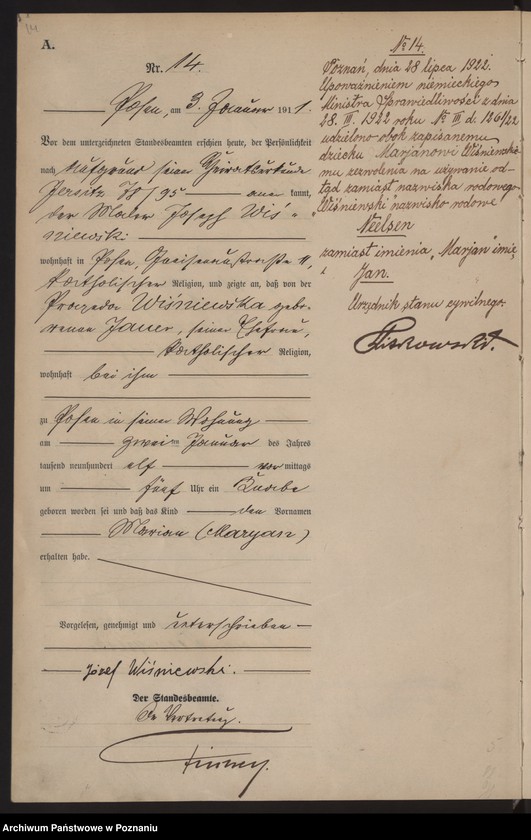 A.
Nr. 14.
Posen, am 3. Januar 1911.
Vor dem unterzeichneten Standesbeamten erschien heute, der Persönlichkeit
nach auf Grund seiner Heiratsurkunde
Jersitz 78/95 kannt,
der Maler Joseph Wiś-
niewski
wohnhaft in Posen, Gneisenaustraße 11,
katholischer Religion, und zeigte an, daß von der
Praxeda Wiśniewska gebo-
renen Jauer, seiner Ehefrau,
katholischer Religion,
wohnhaft bei ihm
zu Posen in seiner Wohnung
am zweiten Januar des Jahres
tausend neunhundert elf vor mittags
um fünf Uhr ein Knabe
geboren worden sei und daß das Kind den Vornamen
Marian (Maryan)
erhalten habe.
Vorgelesen, genehmigt und unterschrieben
Józef Wiśniewski.
Der Standesbeamte.
In Vertretung.
No 14.
Poznań, dnia 28 lipca 1922.
Upoważnieniem niemieckiego
Ministra Sprawiedliwości z dnia
28. III. 1922 roku No III d. 1261/22
udzielono obok zapisanemu
dziecku Marjanowi Wiśniewskie-
mu zezwolenia na używanie od-
tąd zamiast nazwiska rodowego
Wiśniewski nazwisko rodowe
Neelsen
zamiast imienia „Marjan" imię
Jan.
Urzędnik stanu cywilnego.
Archiwum Państwowe w Poznaniu